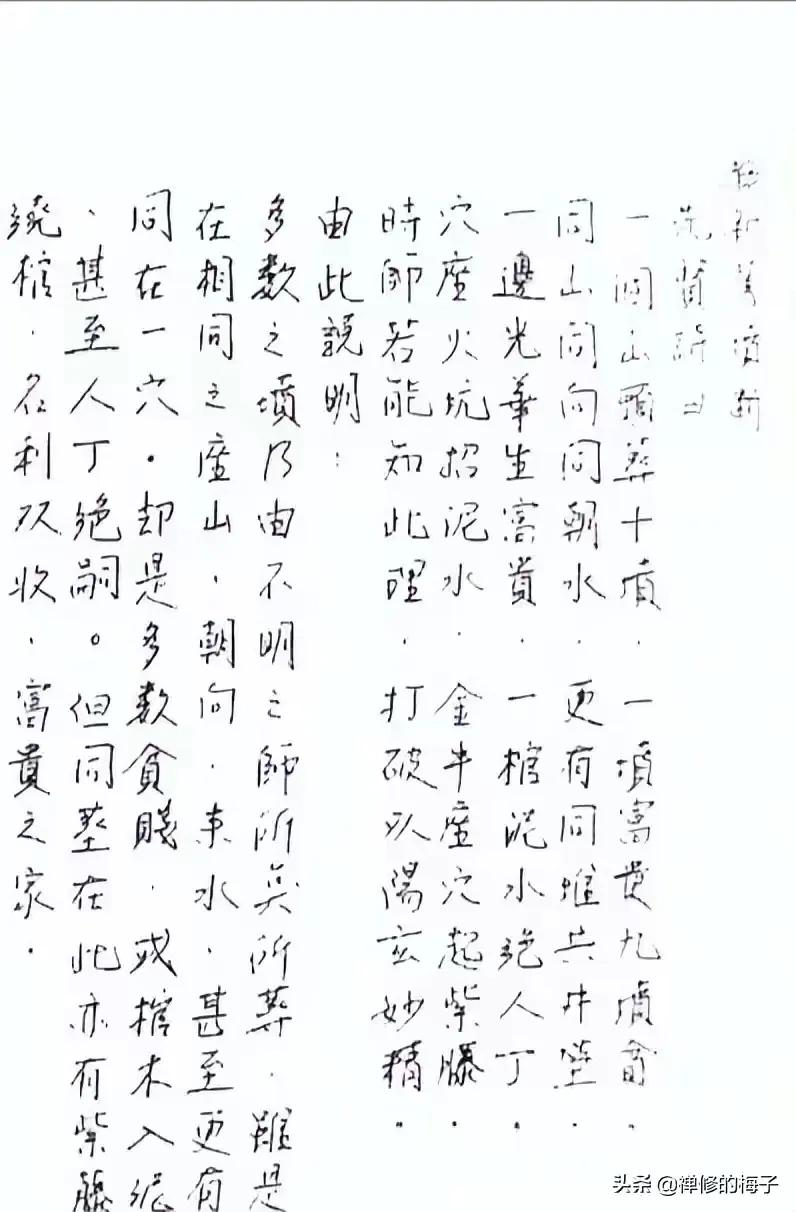 新墳斷
先賢曰
一個山頭葬十墳．一墳富貴九墳貧．
同山同向同朝水．更有同堆共井塋．
一邊光華生富貴．一棺泥水絕人丁．
穴座火坑招泥水．金牛座穴起紫藤．
時師若能知此理．打破阴陽玄妙精．
由此說明：
多數之墳乃由不明之師所所葬．雖是
在相同之座山．朝向．來水．甚至更有
同在一穴．却是多数貧賤．或棺木入泥
．甚至人丁絕嗣。但同塋在此亦有紫藤
繞棺．名利双收．富貴之家．
头条 @禅修的梅子